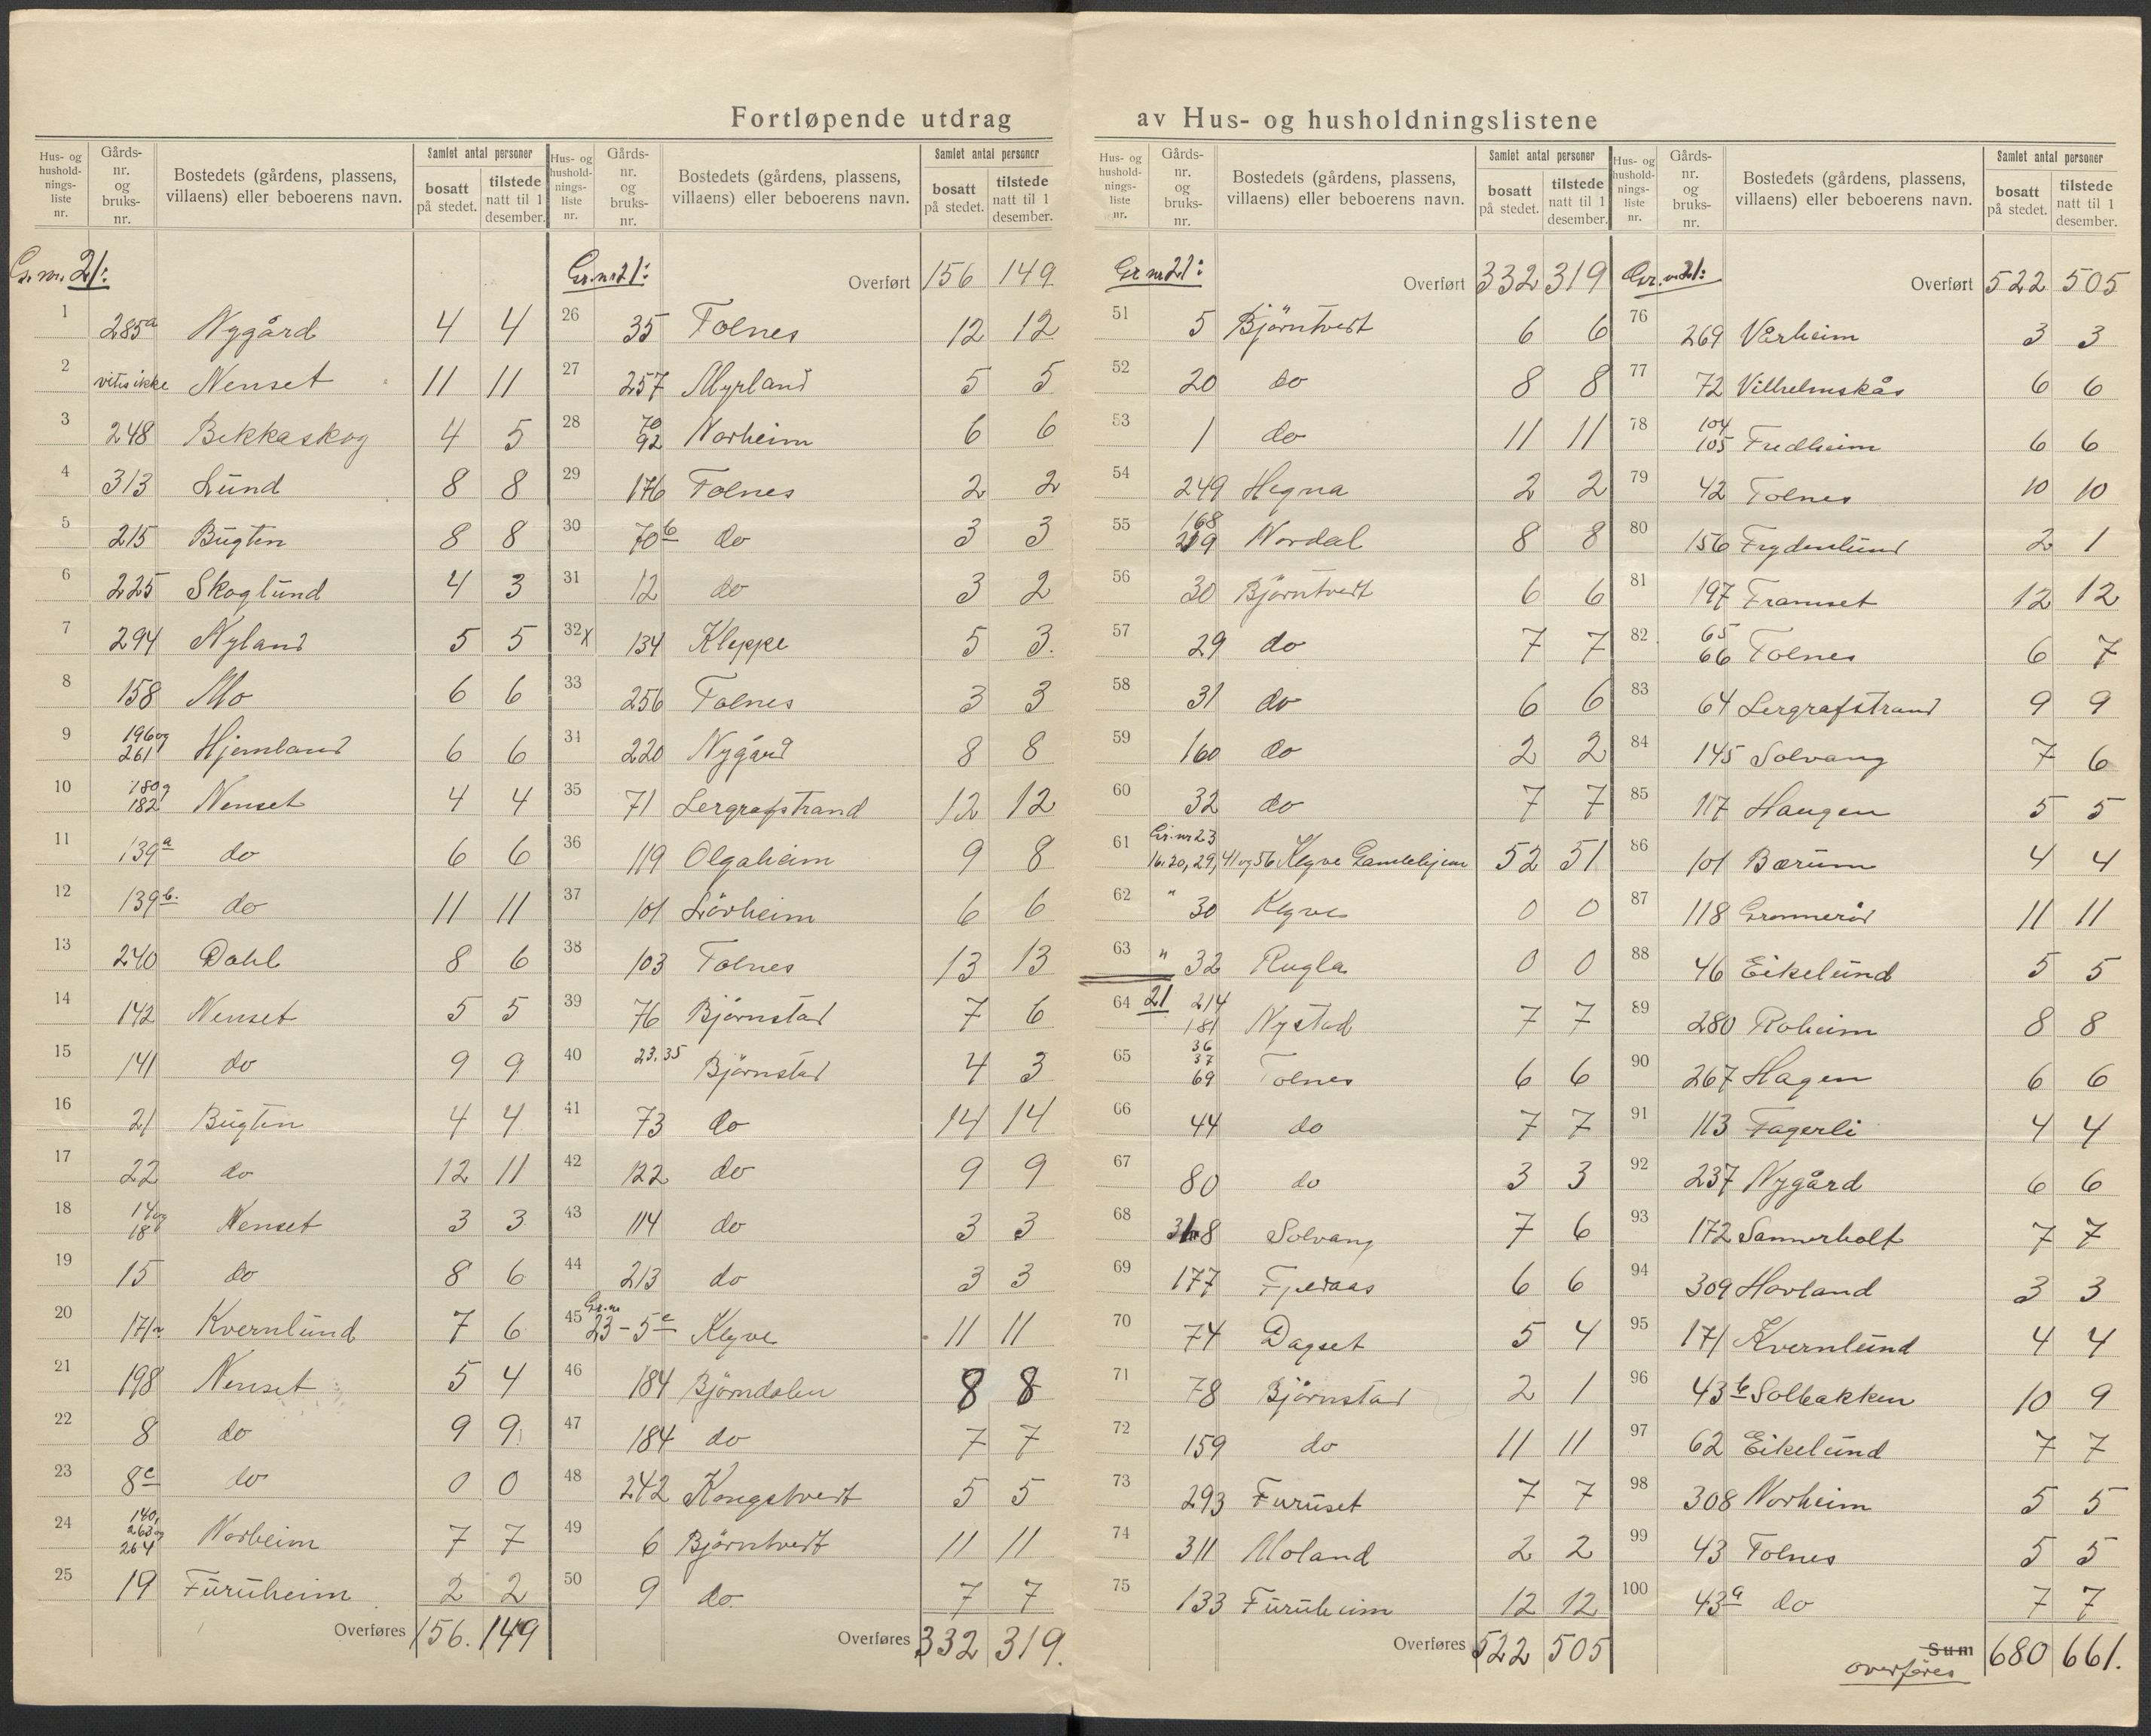 Fortløpende utdrag av Hus- og husholdningslistene
Hus- og husholdnings-liste nr. Gårds-nr. og bruks-nr. Bostedets (gårdens, plassens, villaens) eller beboerens navn. Samlet antal personer bosatt på stedet. tilstede natt til 1 desember.
Gr. nr. 21:
1 285a Nygård 4 4
2 vites ikke Nenset 11 11
3 248 Bekkaskog 4 5
4 313 Lund 8 8
5 215 Bugten 8 8
6 225 Skoglund 4 3
7 294 Nyland 5 5
8 158 Mo 6 6
9 196 og 261 Hjemland 6 6
10 180 og 182 Nenset 4 4
11 139a do 6 6
12 139b. do 11 11
13 240 Dahl 8 6
14 142 Nenset 5 5
15 141 do 9 9
16 21 Bugten 4 4
17 22 do 12 11
18 14 og 18 Nenset 3 3
19 15 do 8 6
20 171a Kvernlund 7 6
21 198 Nenset 5 4
22 8 do 9 9
23 8c do 0 0
24 140, 263 og 264 Norheim 7 7
25 19 Furuheim 2 2
Overføres 156. 149
Hus- og husholdnings-liste nr. Gårds-nr. og bruks-nr. Bostedets (gårdens, plassens, villaens) eller beboerens navn. Samlet antal personer bosatt på stedet. tilstede natt til 1 desember.
Gr. nr 21: Overført 156 149
26 35 Tolnes 12 12
27 257 Myrland 5 5
28 70 92 Norheim 6 6
29 176 Tolnes 2 2
30 70b do 3 3
31 12 do 3 2
32 x 134 Kleppe 5 3.
33 256 Tolnes 3 3
34 220 Nygård 8 8
35 71 Lergrafstrand 12 12
36 119 Olgaheim 9 8
37 101 Lövheim 6 6
38 103 Tolnes 13 13
39 76 Björnstad 7 6
40 23.35 Björnstad 4 3
41 73 do 14 14
42 122 do 9 9
43 114 do 3 3
44 213 do 3 3
45 Gr. nr 23-5c Klyve 11 11
46 184 Björndalen 8 8
47 184 do 7 7
48 242 Kongstvedt 5 5
49 6 Björntvedt 11 11
50 9 do. 7 7
Overføres 332 319.
Hus- og husholdnings-liste nr. Gårds-nr. og bruks-nr. Bostedets (gårdens, plassens, villaens) eller beboerens navn. Samlet antal personer bosatt på stedet. tilstede natt til 1 desember.
Gr nr 21: Overført 332 319
51 5 Björntvedt 6 6
52 20 do 8 8
53 1 do 11 11
54 249 Hegna 2 2
55 168 219 Nordal 8 8
56 30 Björntvedt 6 6
57 29 do 7 7
58 31 do 6 6
59 160 do 2 2
60 32 do 7 7
61 Gr. nr 23 16, 20, 29, 41 og 56 Klyve Gamlehjem 52 51
62 " 30 Klyve 0 0
63 " 32 Rugla 0 0
64 21 214 181 Nystad 7 7
65 36 37 69 Tolnes 6 6
66 44 do 7 7
67 80 do 3 3
68 318 Solvang 7 6
69 177 Fjeraas 6 6
70 74 Dagset 5 4
71 78 Björnstad 2 1
72 159 do 11 11
73 293 Furuset 7 7
74 311 Moland 2 2
75 133 Furuheim 12 12
Overføres 522 505
Hus- og husholdnings-liste nr. Gårds-nr. og bruks-nr. Bostedets (gårdens, plassens, villaens) eller beboerens navn. Samlet antal personer bosatt på stedet. tilstede natt til 1 desember.
Gr. nr. 21: Overført 522 505
76 269 Vårheim 3 3
77 72 Vilhelmskås 6 6
78 104 105 Fredheim 6 6
79 42 Tolnes 10 10
80 156 Frydenlund 2 1
81 197 Framset 12 12
82 65 66 Tolnes 6 7
83 64 Lergrafstrand 9 9
84 145 Solvang 7 6
85 117 Haugen 5 5
86 101 Bærum 4 4
87 118 Grømmerød 11 11
88 46 Eikelund 5 5
89 280 Roheim 8 8
90 267 Hagen 6 6
91 113 Fagerli 4 4
92 237 Nygård 6 6
93 172 Sannerholt 7 7
94 309 Hovland 3 3
95 171 Kvernlund 4 4
96 43b Solbakken 10 9
97 62 Eikelund 7 7
98 308 Norheim 5 5
99 43 Tolnes 5 5
100 43a do 7 7
Sum 680 661.
overføres